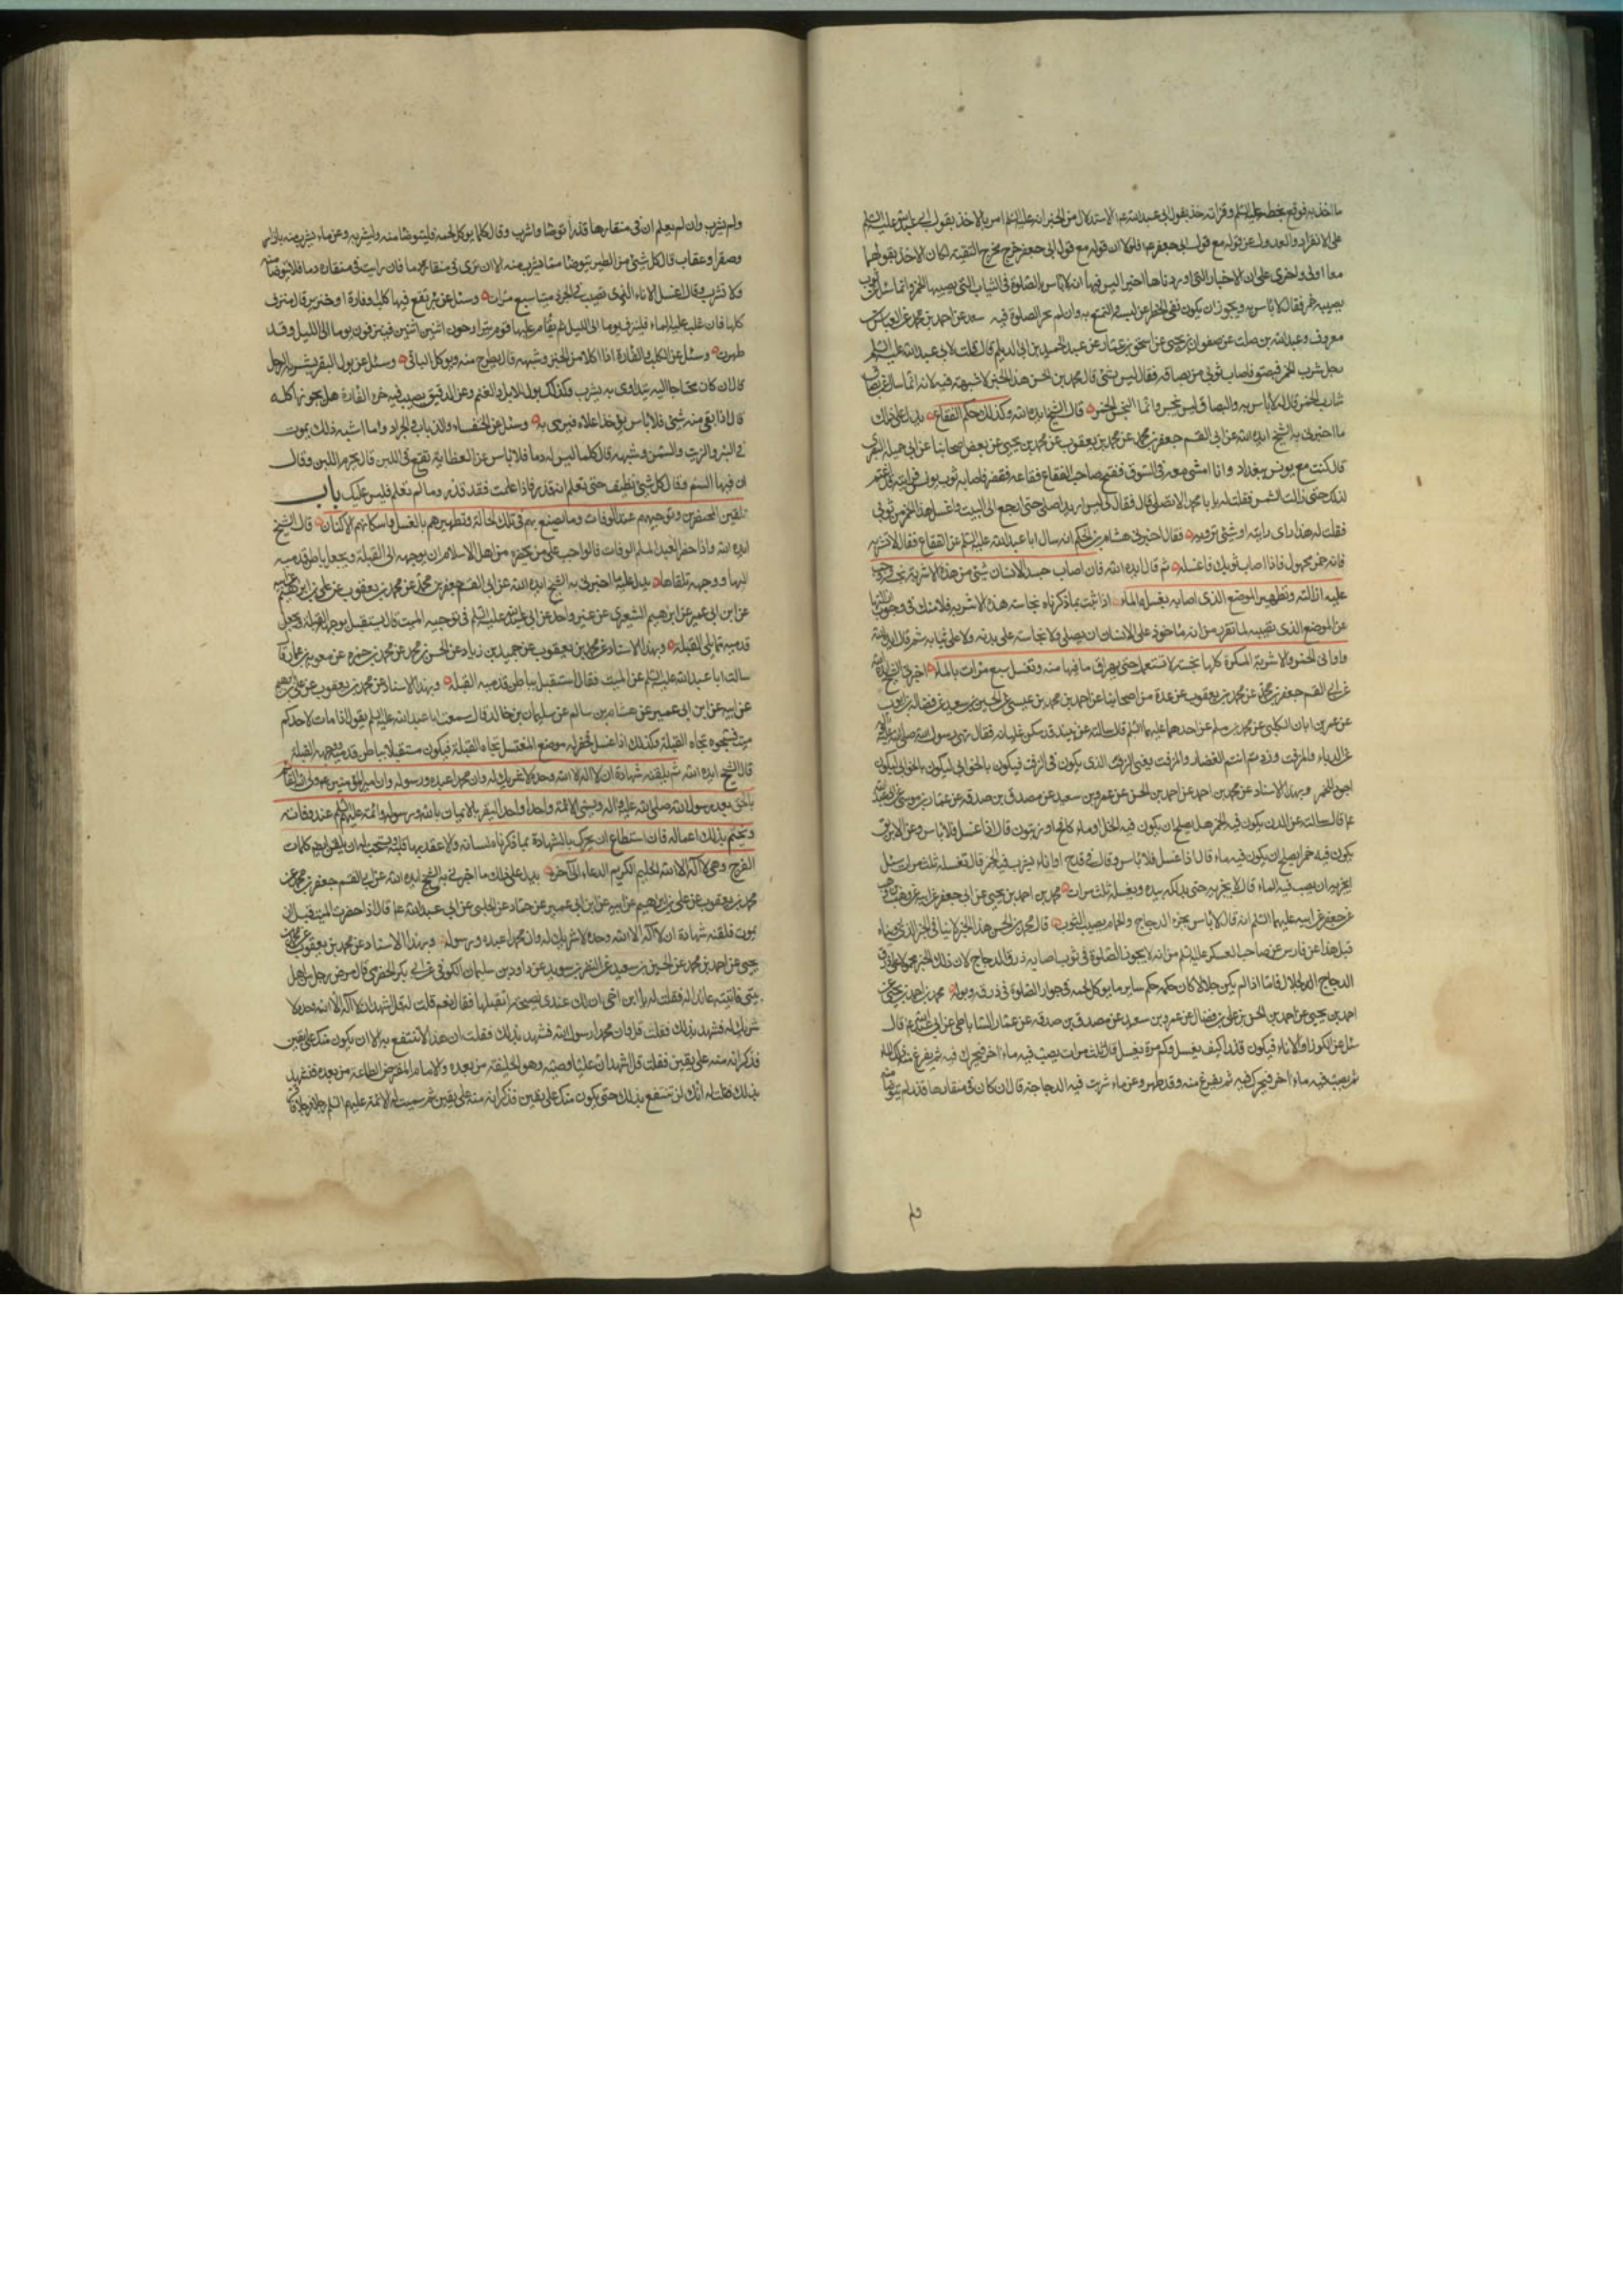 ما اخذ به فوقع بخطه عليه السلم وقراته خذ بقول ابى عبد الله عم الاستدلال من الخبر انه عليه السلم امر بالاخذ بقول ابى عبد الله عليه السلم
على الانفراد والعدول عن قوله مع قول ابى جعفر عم فلولا ان قوله مع قول ابى جعفر خرج مخرج التقية لكان الاخذ بقولهما
معا اولى واحرى على ان الاخبار التى اوردناها اخيرا ليس فيها انه لا باس بالصلوة فى الثياب التى يصيبها الخمر وانما سئل عن ثوب
يصيبه خمر فقال لا باس به ويجوز ان يكون نفى الحظر عن لبسه والتمتع به وان لم يجز الصلوة فيه سعد عن احمد بن محمد عن العباس بن
معروف وعبد الله بن صلت عن صفوان بن يحيى عن اسحق بن عمار عن عبد الحميد بن ابى الديلم قال قلت لابى عبد الله عليه السلم
رجل شرب الخمر فبصق فاصاب ثوبى من بصاقه فقال ليس بشئ قال محمد بن الحسن هذا الخبر لا شبهة فيه لانه انما سال عن بصاق
شارب الخمر فقال لا باس به والبصاق ليس بنجس وانما النجس الخمر قال الشيخ ايده الله وكذلك حكم الفقاع يدل على ذلك
ما اخبرنى به الشيخ ايده الله عن ابى القسم جعفر بن محمد عن محمد بن يعقوب عن محمد بن يحيى عن بعض اصحابنا عن ابى جميلة البصرى
قال كنت مع يونس ببغداد وانا امشى معه فى السوق ففتح صاحب الفقاع فقاعه فقفز فاصاب ثوب يونس فرايته قد اغتم
لذلك حتى زالت الشمس فقلت له يا با محمد الا تصلى قال فقال لى ليس اريد اصلى حتى ارجع الى البيت واغسل هذا الخمر من ثوبى
فقلت له هذا راى رايته او شئ ترويه فقال اخبرنى هشام بن الحكم انه سال ابا عبد الله عليه السلم عن الفقاع فقال لا تشربه
فانه خمر مجهول فاذا اصاب ثوبك فاغسله ثم قال ايده الله فان اصاب جسد الانسان شئ من هذه الاشربة نجسه ووجب
عليه ازالته وتطهير الموضع الذى اصابه بغسله بالماء اذا ثبت بما ذكرناه نجاسة هذه الاشربة فلا شك فى وجوب ازالتها
عن الموضع الذى تصيبه لما تقرر من انه ماخوذ على الانسان ان يصلى ولا نجاسة على بدنه ولا على ثيابه ثم قال ايده الله
واوانى الخمر والاشربة المسكرة كلها نجسة لا تستعمل حتى يهراق ما فيها منه وتغسل سبع مرات بالماء اخبرنى الشيخ ايده الله
عن ابى القسم جعفر بن محمد عن محمد بن يعقوب عن عدة من اصحابنا عن احمد بن محمد بن عيسى عن الحسين بن سعيد عن فضالة بن ايوب
عن عمر بن ابان الكلبى عن محمد بن مسلم عن احدهما عليهما السلم قال سالته عن نبيذ قد سكن غليانه فقال نهى رسول الله صلى الله عليه واله
عن الدباء والمزفت وزدتم انتم الغضار والمزفت يعنى الزفت الذى يكون فى الزق فيكون بالخوابى ليكون
اجود للخمر وبهذا الاسناد عن محمد بن احمد عن احمد بن الحسن عن عمرو بن سعيد عن مصدق بن صدقه عن عمار بن موسى عن ابى عبد الله
عم قال سالته عن الدن يكون فيه الخمر هل يصلح ان يكون فيه الخل او ماء كامخ او زيتون قال اذا غسل فلا باس وعن الابريق
يكون فيه خمر ايصلح ان يكون فيه ماء قال اذا غسل فلا باس وقال فى قدح او اناء يشرب فيه الخمر قال تغسله ثلث مرات سئل
ايجزيه ان يصب فيه الماء قال لا يجزيه حتى يدلكه بيده ويغسله ثلث مرات محمد بن احمد بن يحيى عن ابى جعفر عن ابيه عن وهب بن وهب
عن جعفر عن ابيه عليهما السلم انه قال لا باس بخرء الدجاج والحمام يصيب الثوب قال محمد بن الحسن هذا الخبر لا ينافى الخبر الذى رويناه
قبل هذا عن فارس عن صاحب العسكر عليه السلم من انه لا يجوز الصلوة فى ثوب اصابه ذرق الدجاج لان ذلك الخبر محمول على ذرق
الدجاج الجلال فاما اذا لم يكن جلالا كان حكمه حكم ساير ما يوكل لحمه فى جواز الصلوة فى ذرقه وبوله محمد بن احمد بن يحيى عن
احمد بن يحيى عن احمد بن الحسن بن على بن فضال عن عمرو بن سعيد عن مصدق بن صدقه عن عمار الساباطى عن ابى عبد الله عم قال
سئل عن الكوز او الاناء فيكون قذرا كيف يغسل وكم مرة يغسل قال ثلث مرات يصب فيه ماء اخر فيحرك فيه ثم يفرغ منه ذلك الماء
ثم يصب فيه ماء اخر فيحرك فيه ثم يفرغ منه وقد طهر وعن ماء شربت فيه الدجاجة قال ان كان فى منقارها قذر لم يتوضا منه
ولم يشرب وان لم يعلم ان فى منقارها قذرا توضا واشرب وقال كلما يوكل لحمه فليتوضا منه وليشربه وعن ماء يشرب منه باز او
وصقر او عقاب قال كل شئ من الطير يتوضا مما يشرب منه الا ان ترى فى منقاره دما فان رايت فى منقاره دما فلا تتوضا منه
ولا تشرب وقال اغسل الاناء الذى تصيب فيه الجرذ ميتا سبع مرات وسئل عن بئر يقع فيها كلب او فارة او خنزير قال ينزف
كلها فان غلب عليه الماء فلينزف يوما الى الليل ثم يقام عليها قوم يتراوحون اثنين اثنين فينزفون يوما الى الليل وقد
طهرت وسئل عن الكلب والفارة اذا اكلا من الخبز وشبهه قال يطرح منه ويوكل الباقى وسئل عن بول البقر يشربه الرجل
قال ان كان محتاجا اليه يتداوى به يشرب وكذلك بول الابل والغنم وعن الدقيق يصيب فيه خرء الفارة هل يجوز اكله
قال اذا بقى منه شئ فلا باس يوخذ اعلاه فيرمى به وسئل عن الخنفساء والذباب والجراد وما اشبه ذلك يموت
فى البئر والزيت والسمن وشبهه قال كلما ليس له دم فلا باس عن العظاية تقع فى اللبن قال يحرم اللبن وقال
ان فيها السم وقال كل شئ نظيف حتى تعلم انه قذر فاذا علمت فقد قذر وما لم تعلم فليس عليك باب
تلقين المحتضرين وتوجيههم عند الوفاة وما يصنع بهم فى تلك الحال وتطهيرهم بالغسل واسكانهم الاكفان قال الشيخ
ايده الله واذا حضر العبد المسلم الوفاة فالواجب على من يحضره من اهل الاسلام ان يوجهه الى القبلة ويجعل باطن قدميه
اليها ووجهه تلقاها يدل عليه ما اخبرنى به الشيخ ايده الله عن ابى القسم جعفر بن محمد عن محمد بن يعقوب عن على بن ابرهيم عن ابيه
عن ابن ابى عمير عن ابرهيم الشعيرى عن غير واحد عن ابى عبد الله عليه السلم فى توجيه الميت قال يستقبل بوجهه القبلة ويجعل
قدميه مما يلى القبلة وبهذا الاسناد عن محمد بن يعقوب عن حميد بن زياد عن الحسن بن محمد عن محمد بن حمزة عن معوية بن عمار قال
سالت ابا عبد الله عليه السلم عن الميت فقال استقبل بباطن قدميه القبلة وبهذا الاسناد عن محمد بن يعقوب عن على بن ابرهيم
عن ابيه عن ابن ابى عمير عن هشام بن سالم عن سليمان بن خالد قال سمعت ابا عبد الله عليه السلم يقول اذا مات لاحدكم
ميت فسجوه تجاه القبلة وكذلك اذا غسل يحفر له موضع المغتسل تجاه القبلة فيكون مستقبلا بباطن قدميه ووجهه القبلة
قال الشيخ ايده الله ثم يلقنه شهادة ان لا اله الا الله وحده لا شريك له وان محمدا عبده ورسوله وان امير المؤمنين عم ولى الله القائم
بالحق بعد رسول الله صلى الله عليه واله ويسمى الائمة واحدا واحدا ليقر بالايمان بالله وبرسوله وائمته عليهم السلم عند وفاته
ويختم بذلك اعماله فان استطاع ان يحرك بالشهادة بما ذكرناه لسانه والا عقد بها قلبه ويستحب له ان يلقن ايضا كلمات
الفرج وهى لا اله الا الله الحليم الكريم الدعاء الى اخره يدل على ذلك ما اخبرنى به الشيخ ايده الله عن ابى القسم جعفر بن محمد عن
محمد بن يعقوب عن على بن ابرهيم عن ابيه عن ابن ابى عمير عن حماد عن الحلبى عن ابى عبد الله عم قال اذا حضرت الميت قبل ان
يموت فلقنه شهادة ان لا اله الا الله وحده لا شريك له وان محمدا عبده ورسوله وبهذا الاسناد عن محمد بن يعقوب عن محمد بن
يحيى عن احمد بن محمد عن الحسين بن سعيد عن النضر بن سويد عن داود بن سليمان الكوفى عن ابى بكر الحضرمى قال مرض رجل من اهل
بيتى فاتيته عائدا له فقلت له يا ابن اخى ان لك عندى نصيحة اتقبلها فقال نعم فقلت له قل اشهد ان لا اله الا الله وحده لا
شريك له فشهد بذلك فقلت قل وان محمدا رسول الله فشهد بذلك فقلت ان هذا لا تنتفع به الا ان يكون منك على يقين
فذكر انه منه على يقين فقلت قل اشهد ان عليا وصيه وهو الخليفة من بعده والامام المفترض الطاعة من بعده فشهد
بذلك فقلت له انك لن تنتفع بذلك حتى يكون منك على يقين فذكر انه منه على يقين ثم سميت له الائمة عليهم السلم رجلا رجلا فاقر
ولم